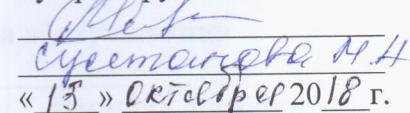 Султанова М.Н
« 15 » октября 2018 г.